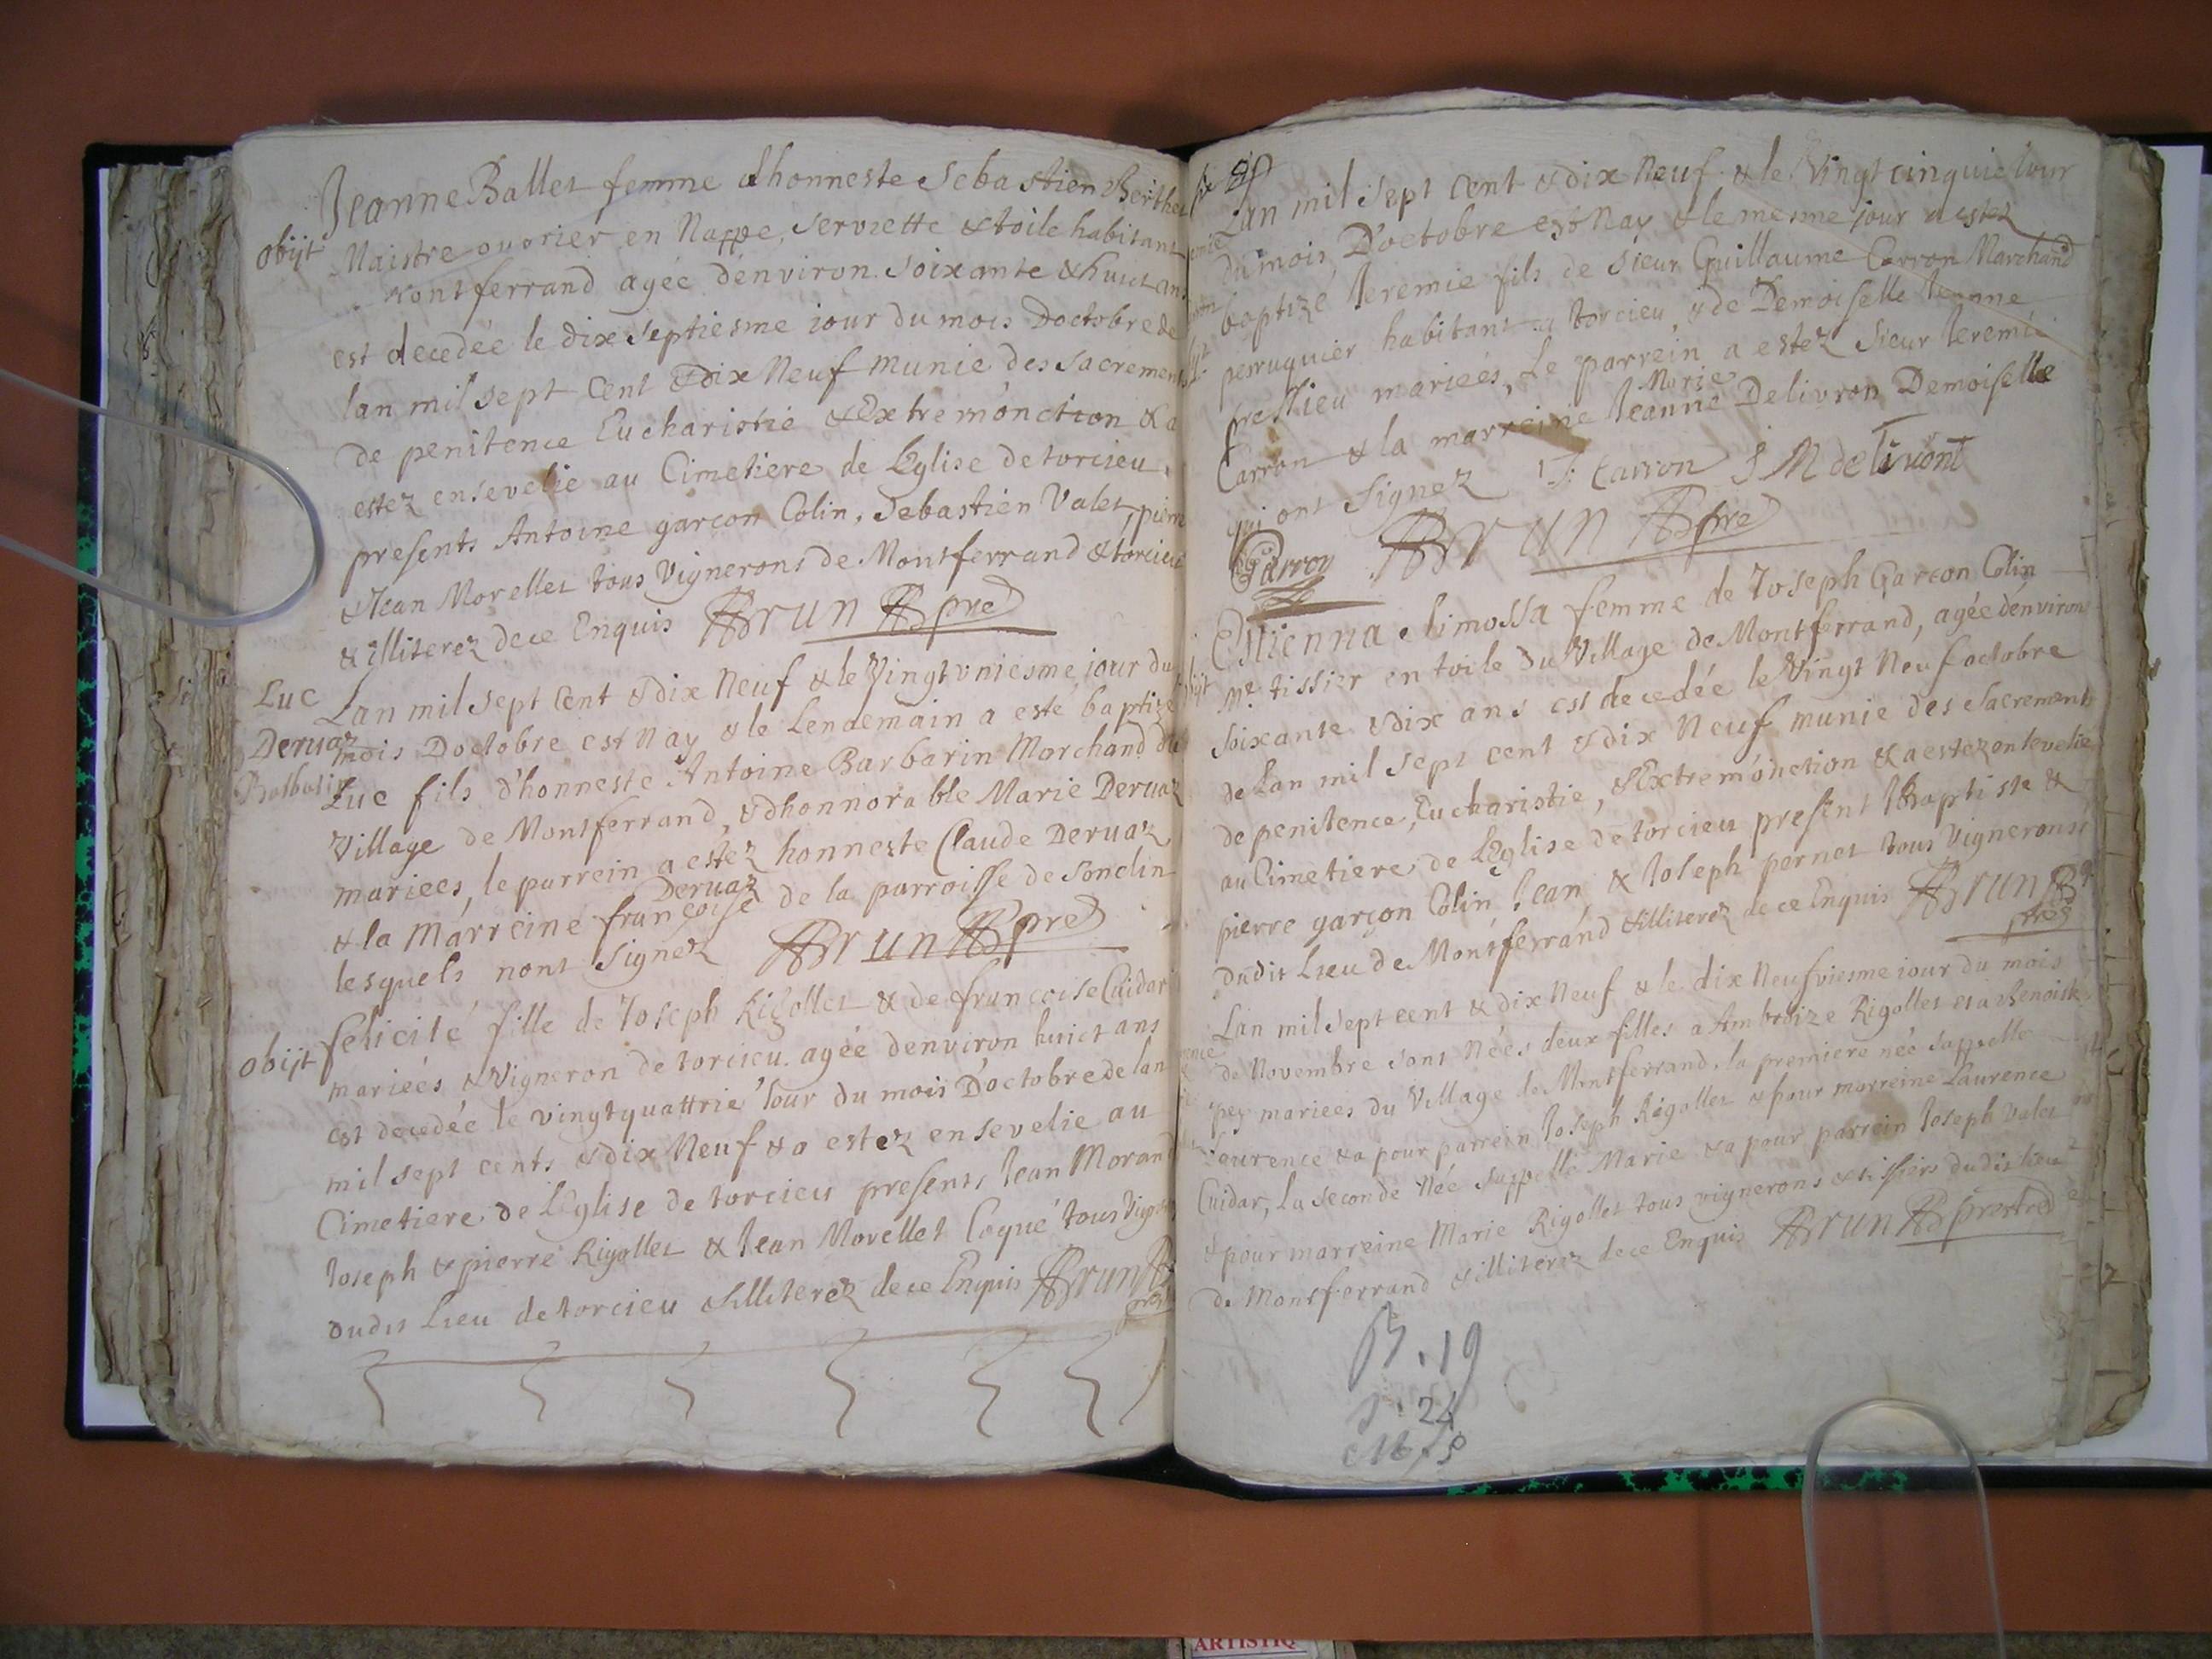 Jeanne Ballet femme dhonneste Sebastien Berthet
obijt Maistre ouvrier en Nappe, serviette & toile habitant
Montferrand agée d'environ soixante & huict ans
est decedée le dix septiesme iour du mois Doctobre de
lan mil sept cent & dix Neuf munie des sacrements
de penitence Eucharistie & Extremonction & a
estez ensevelie au Cimetiere de Leglise de torcieu,
presents Antoine garçon Colin, Sebastien Valet, pierre
& Jean Morellet tous Vignerons de Montferrand & torcieu
& illiterez de ce Enquis Brun pre
Luc Lan mil sept cent & dix Neuf & le Vingt uniesme iour du
Deruaz mois Doctobre est Nay & le Lendemain a esté baptizé
Luc fils d'honneste Antoine Barbarin Marchand du
Village de Montferrand, & dhonnorable Marie Deruaz
mariees, le parrein a estez honneste Claude Deruaz
& la Marreine françoise Deruaz de la parroisse de Sonclin
lesquels nont signez Brun pre
felicité fille de Joseph Rigollet & de françoise Cuidar
obijt mariées & Vigneron de torcieu. agée denviron huict ans
est decedée le vingtquattrie Iour du mois D'octobre de lan
mil sept cents & dix Neuf & a estez ensevelie au
Cimetiere de Leglise de torcieu presents Jean Morand
Joseph & pierre Rigollet & Jean Morellet Coqué tous Vignerons
dudit Lieu de torcieu & illiterez de ce Enquis Brun
Lan mil sept cent & dix Neuf & le Vingt cinquie iour
du mois D'octobre est Nay & le mesme jour a estez
baptizé Ieremie fils de sieur Guillaume Carron Marchand
perruquier habitant a torcieu, & de Demoiselle Jeanne
mariées, Le parrein a estez Sieur Ieremie
Carron & la marreine Jeanne Marie Delivron Demoiselle
qui ont signez J: Carron J M delivront
Carron Brun pre
Estienna Simossa femme de Joseph Garçon Colin
obijt Me. tissier en toile du Village de Montferrand, agée d'environ
soixante & dix ans est decedée le Vingt Neuf octobre
de Lan mil sept cent & dix Neuf munie des Sacrements
de penitence, Eucharistie, & Extremonction & a estez ensevelie
au Cimetiere de Leglise de torcieu present JBaptiste &
pierre garçon Colin, Jean, & Joseph pernet tous Vignerons
dudit Lieu de Montferrand & illiterez de ce Enquis Brun
pre
Lan mil sept cent & dix Neuf & le dix Neufviesme iour du mois
de Novembre sont Nées deux filles a Ambroize Rigollet et a Benoiste
pey mariees du Village de Montferrand. la premiere née sappelle
Laurence & a pour parrein Joseph Rigollet & pour marreine Laurence
Cuidar, La seconde Née sappelle Marie & a pour parrein Joseph Valet
& pour marreine Marie Rigollet tous vignerons & tissiers dudit lieu
de Montferrand & illiterez de ce Enquis Brun prestre
B. 19
24
M. 8
ARTISTIQ